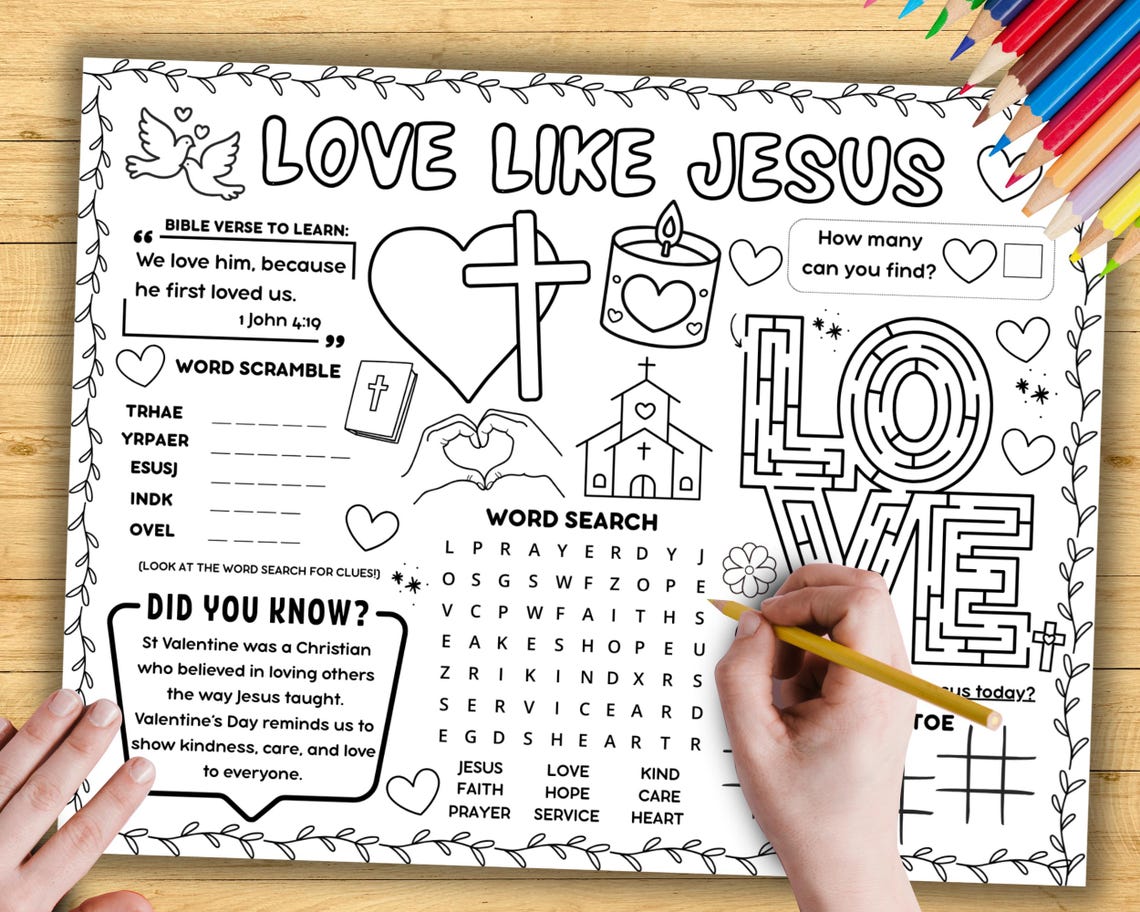 LOVE LIKE JESUS
BIBLE VERSE TO LEARN:
“
We love him, because
he first loved us.
1 John 4:19
”
How many
can you find?
WORD SCRAMBLE
TRHAE _ _ _ _ _
YRPAER _ _ _ _ _ _
ESUSJ _ _ _ _ _
INDK _ _ _ _
OVEL _ _ _ _
(LOOK AT THE WORD SEARCH FOR CLUES!)
LOVE
DID YOU KNOW?
St Valentine was a Christian
who believed in loving others
the way Jesus taught.
Valentine's Day reminds us to
show kindness, care, and love
to everyone.
WORD SEARCH
L P R A Y E R D Y J
O S G S W F Z O P E
V C P W F A I T H S
E A K E S H O P E U
Z R I K I N D X R S
S E R V I C E A R D
E G D S H E A R T R
JESUS LOVE KIND
FAITH HOPE CARE
PRAYER SERVICE HEART
today?
TOE